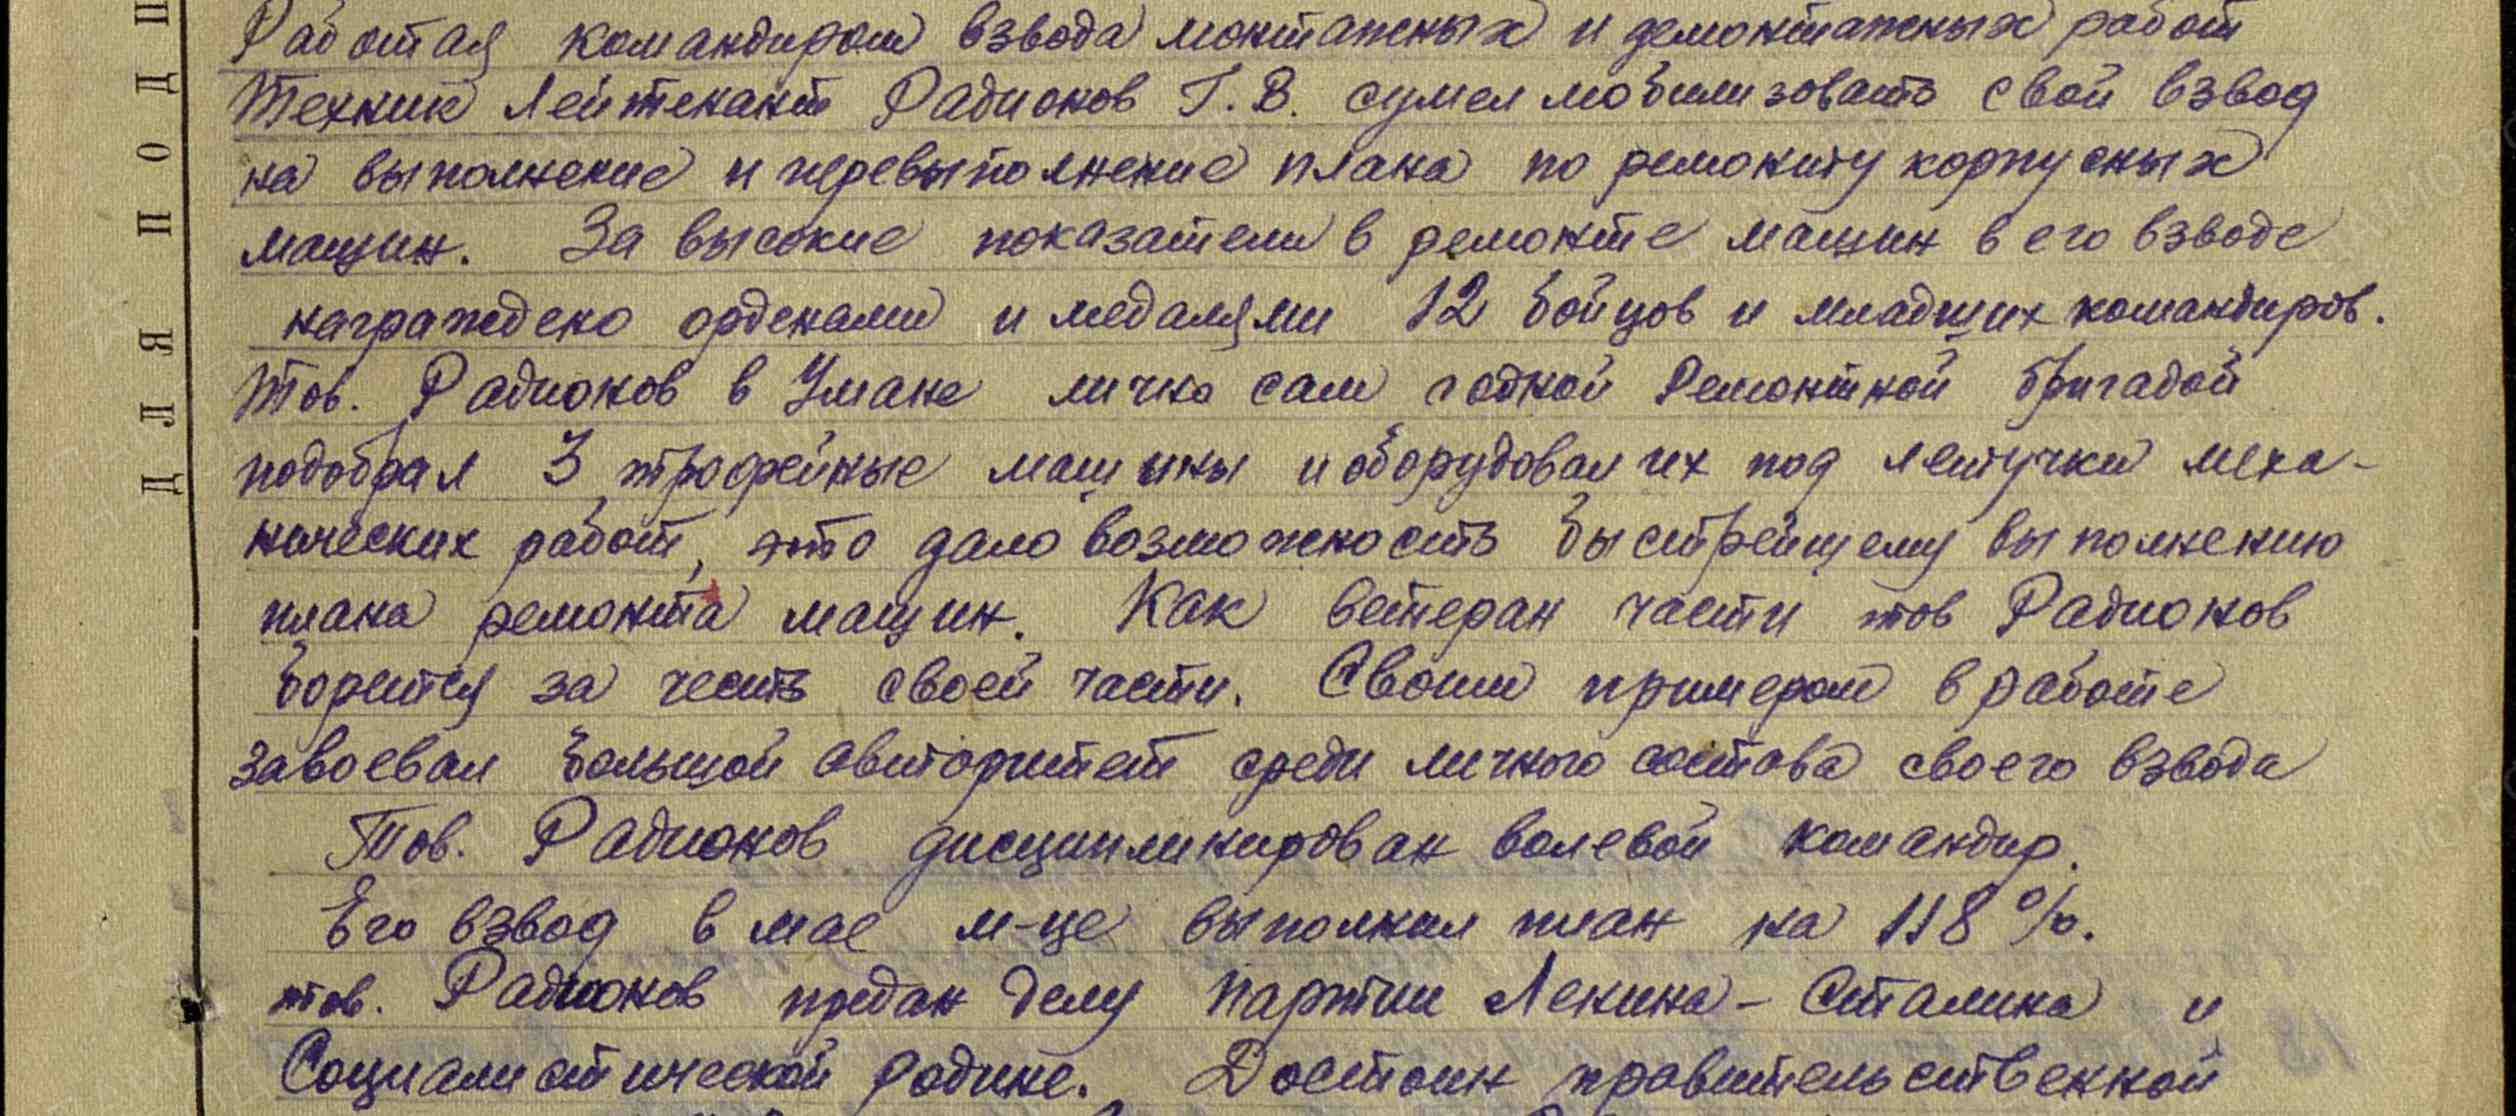 Работая командиром взвода монтажных и демонтажных работ
Техник Лейтенант Радионов Г.В. сумел мобилизовать свой взвод
на выполнение и перевыполнение плана по ремонту корпусных
машин. За высокие показатели в ремонте машин в его взводе
награждено орденами и медалями 12 бойцов и младших командиров.
Тов. Радионов в Умане лично сам с одной Ремонтной бригадой
подобрал 3 трофейные машины и оборудовал их под летучки меха-
нических работ, это дало возможность быстрейшему выполнению
плана ремонта машин. Как ветеран части тов Радионов
борится за честь своей части. Своим примером в работе
завоевал большой авторитет среди личного состава своего взвода
Тов. Радионов дисциплинирован волевой командир.
Его взвод в мае м-це выполнил план на 118%.
тов. Радионов предан делу партии Ленина - Сталина и
Социалистической родине. Достоин правительственной
ДЛЯ ПОДП